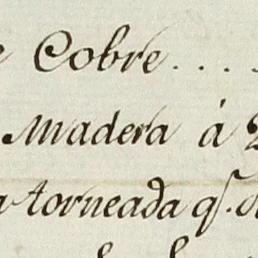 Cobre....
Madera á
torneada qᵉ.